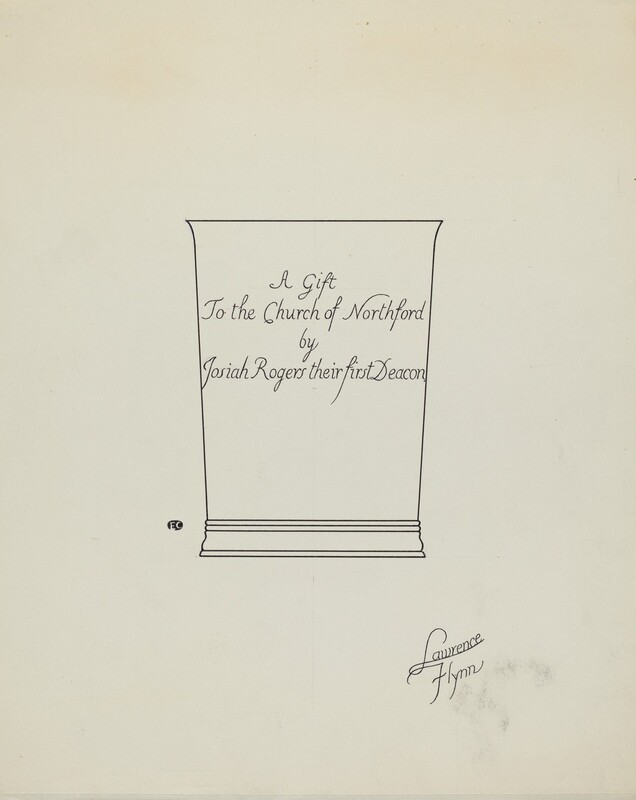 A Gift
To the Church of Northford
by
Josiah Rogers their first Deacon
EC
Lawrence
Flynn